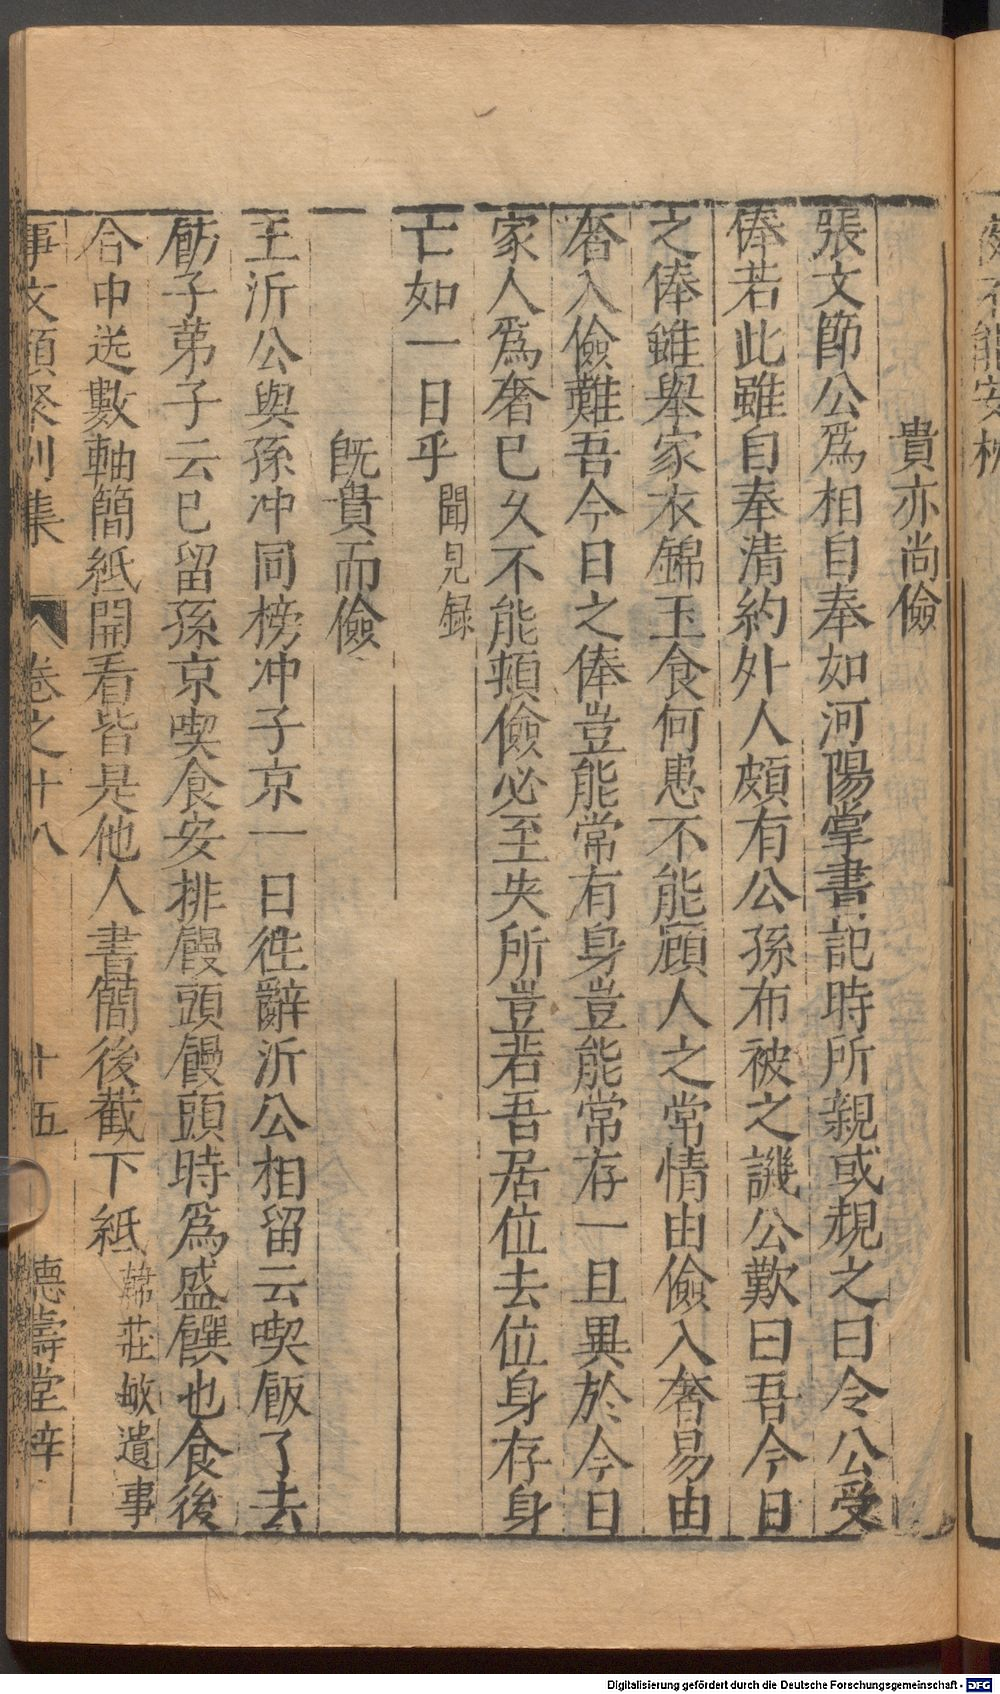 貴亦尚儉
張文節公爲相自奉如河陽掌書記時所親或規之曰令公受
俸若此雖自奉清約外人頗有公孫布被之譏公歎曰吾今日
之俸雖舉家衣錦玉食何患不能顧人之常情由儉入奢易由
奢入儉難吾今日之俸豈能常有身豈能常存一旦異於今日
家人爲奢已久不能頓儉必至失所豈若吾居位去位身存身
亡如一日乎 聞見録
旣貴而儉
王沂公與孫冲同榜冲子京一日徃辭沂公相留云喫飯了去
飭子弟子云已留孫京喫食安排饅頭饅頭時爲盛饌也食後
合中送數軸簡紙開看皆是他人書簡後截下紙 韓莊敏遺事
事文類聚別集 卷之十八 十五 德壽堂梓
Digitalisierung gefördert durch die Deutsche Forschungsgemeinschaft - DFG